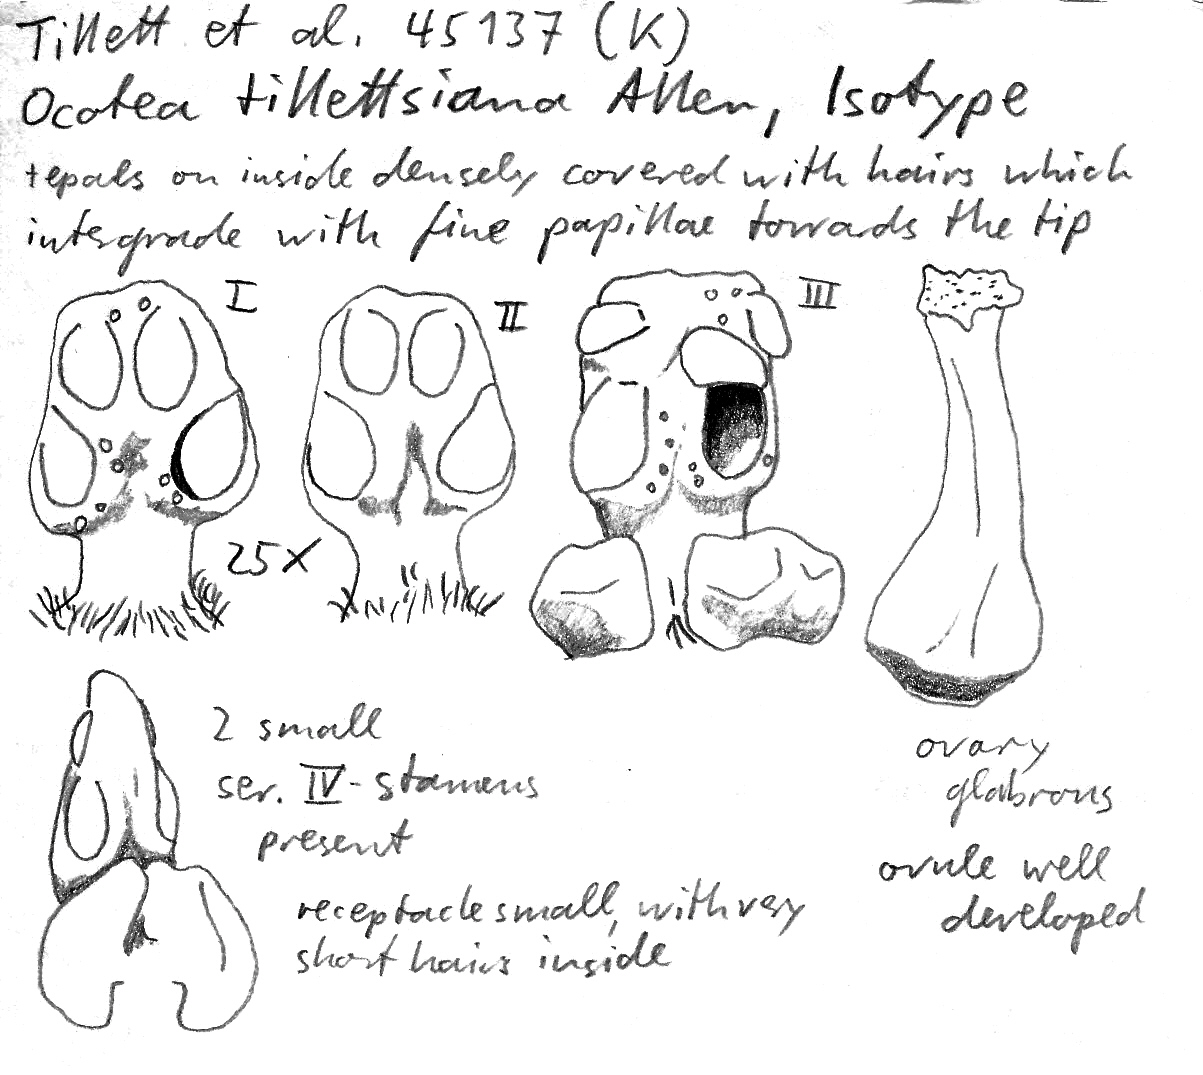 Tillett et al. 45137 (K)
Ocotea tillettsiana Allen, Isotype
tepals on inside densely covered with hairs which
intergrade with fine papillae towards the tip
I
II
III
25x
2 small
ser. IV-stamens
present
receptacle small, with very
short hairs inside
ovary
glabrous
ovule well
developed